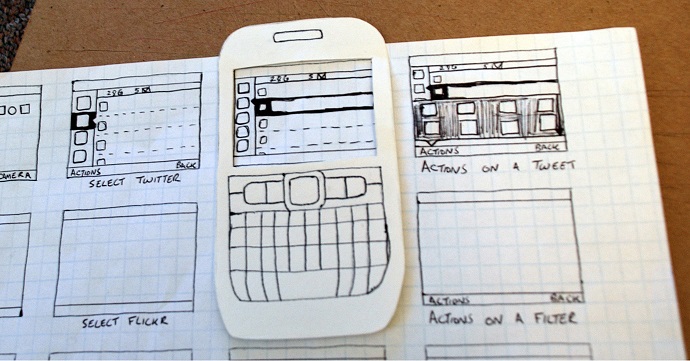 28G 5
28G 5
28G 5
CAMERA
ACTIONS BACK
SELECT TWITTER
ACTIONS BACK
ACTIONS ON A TWEET
SELECT FLICKR
ACTIONS BACK
ACTIONS ON A FILTER